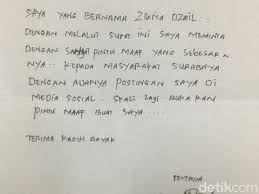 SAYA YANG BERNAMA ZIKRIA DZAIL..
DENGAN MELALUI SURAT INI SAYA MEMINTA
DENGAN PINTU MAAF YANG SEBESAR
NYA.. KEPADA MASYARAKAT SURABAYA
DENGAN ADANYA POSTINGAN SAYA DI
MEDIA SOSIAL.. SKALI LAGI BUKA KAN
PINTU MAAF BUAT SAYA.....
TERIMA KASIH BAYAK
TERTANDA
detikcom